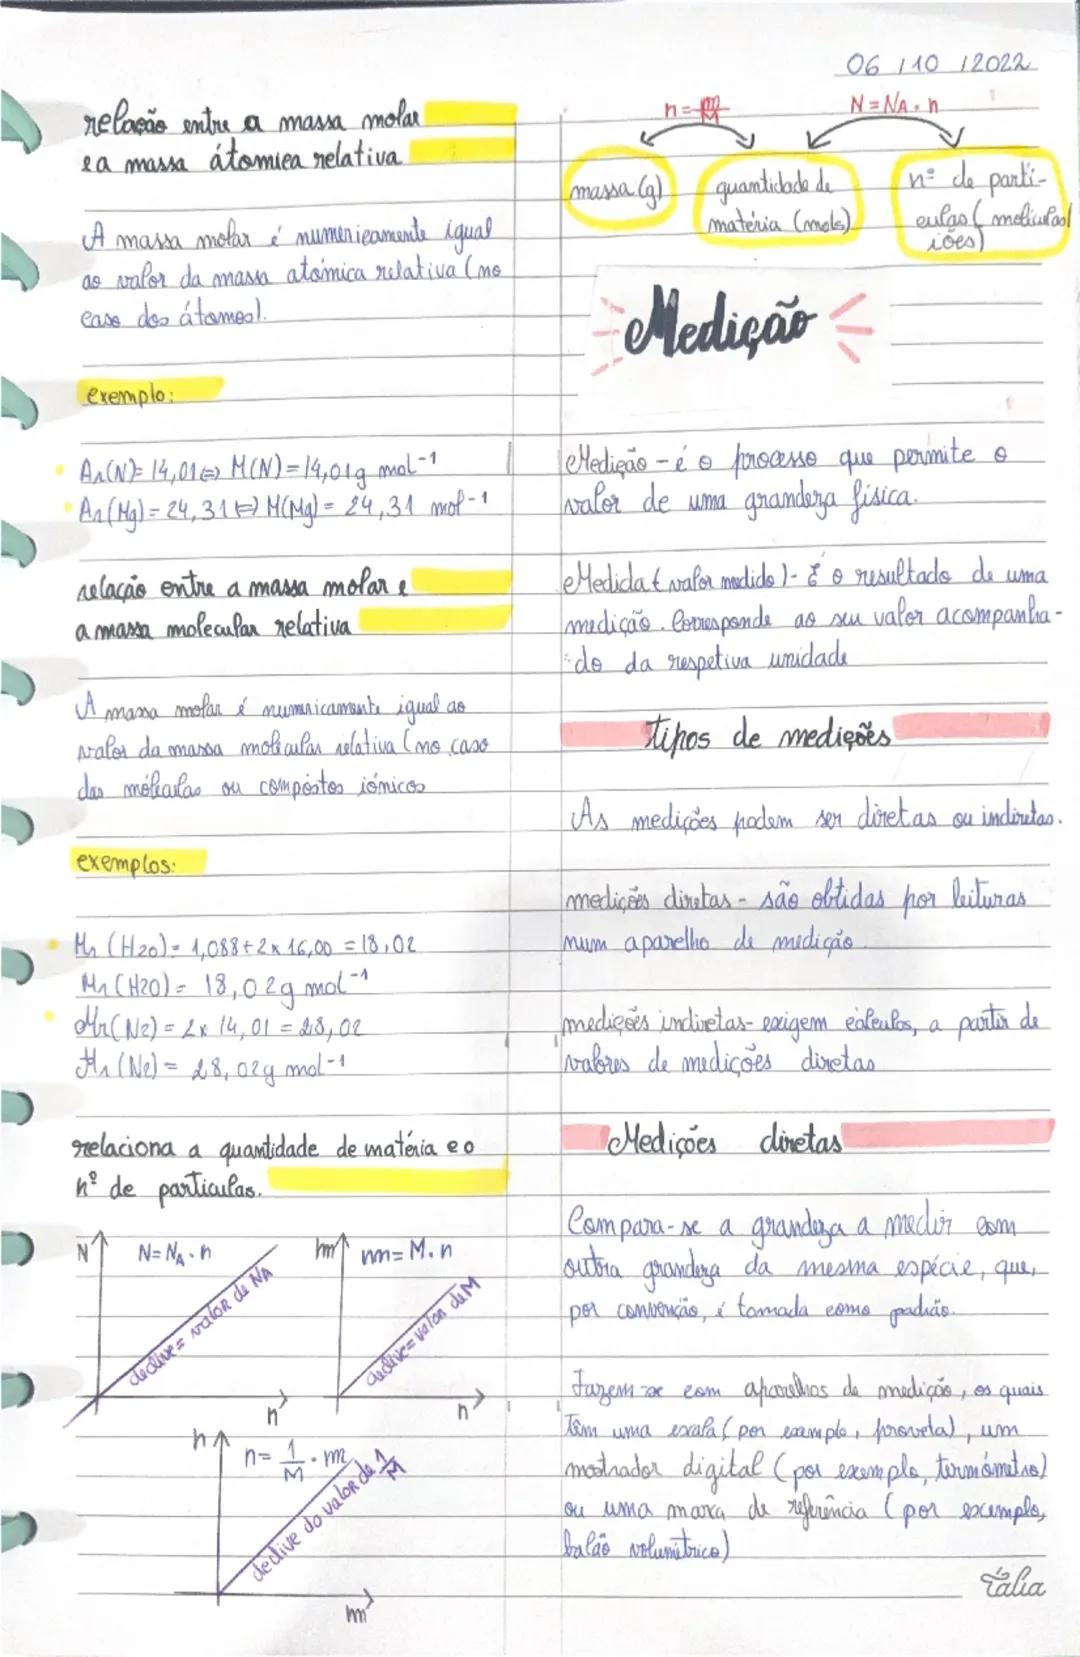 06 / 10 / 2022
relação entre a massa molar
e a massa átomica relativa
A massa molar é numericamente igual
ao valor da massa atómica relativa (no
caso dos átomos).
exemplo:
Ar(N)= 14,01⇔ M(N)=14,01g mol-1
Ar(Mg)=24,31⇔ M(Mg)= 24,31 mol-1
relação entre a massa molar e
a massa molecular relativa
A massa molar é numericamente igual ao
valor da massa molecular relativa (no caso
das móleculas ou compostos iónicos
exemplos:
Mr (H2O)= 1,088+2x16,00 =18,02
Mr(H2O)= 18,02g mol-1
Mr(N2) = 2x 14,01 = 28,02
Mr(N2) = 28,02g mol-1
relaciona a quantidade de matéria e o
nº de particulas.
N
N=NA.n
declive= valor de NA
n
m
m=M.n
declive= valor de M
n
n
n= 1/M . m
declive do valor de 1/M
m
n=m/M
N=NA.n
massa (g)
quantidade de
matéria (mols)
nº de parti-
culas (moléculas/
iões)
Medição
Medição - é o processo que permite o
valor de uma grandeza física.
Medida (valor medido)- É o resultado de uma
medição. Corresponde ao seu valor acompanha-
do da respetiva unidade
tipos de medições
As medições podem ser diretas ou indiretas.
medições diretas - são obtidas por leituras
num aparelho de medição.
medições indiretas- exigem cálculos, a partir de
valores de medições diretas
Medições diretas
Compara-se a grandeza a medir com
outra grandeza da mesma espécie, que,
por convenção, é tomada como padrão.
Fazem-se com aparelhos de medição, os quais
têm uma escala (por exemplo, proveta), um
mostrador digital (por exemplo, termómetro)
ou uma marca de referência (por exemplo,
balão volumétrico)
Tália